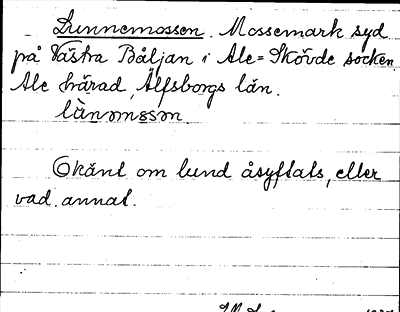 Lunnemossen. Mossemark syd
på Västra Båljan i Ale-Skövde socken
Ale härad, Älfsborgs län.
lànəməsən
Okänt om lund åsyftats, eller
vad annat.